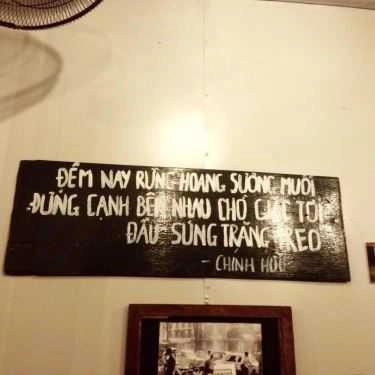 ĐÊM NAY RỪNG HOANG SƯƠNG MUỐI
ĐỨNG CẠNH BÊN NHAU CHỜ GIẶC TỚI
ĐẦU SÚNG TRĂNG TREO
- CHÍNH HỮU